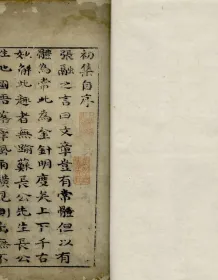 初集自序
張融之言曰文章豈有常體但以有
體為常此為金針明度矣上下千古
妙解此趣者無踰蘇長公先生長公